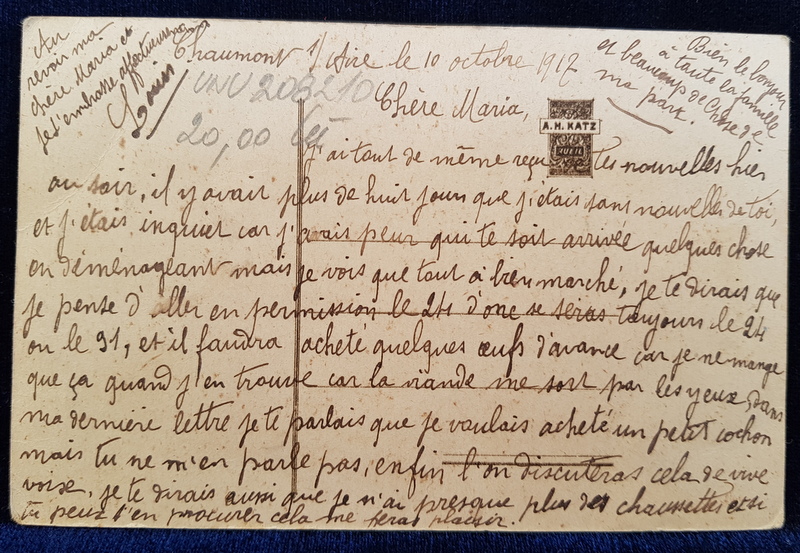 Chaumont s/ Aire le 10 octobre 1917
Chère Maria,
J'ai tout de même reçu tes nouvelles hier
au soir, il y avait plus de huit jours que j'étais sans nouvelles de toi,
et j'étais inquiet car j'avais peur qui te soit arrivée quelques chose
en déménageant mais je vois que tout a bien marché, je te dirais que
je pense d'aller en permission le 24 d'one se seras toujours le 24
ou le 31, et il faudra acheté quelques œufs d'avance car je ne mange
que ça quand j'en trouve car la viande me sort par les yeux, dans
ma dernière lettre je te parlais que je voulais acheté un petit cochon
mais tu ne m'en parle pas, enfin l'on discuteras cela de vive
voixe, je te dirais aussi que je n'ai presque plus des chaussettes et si
tu peux t'en procurer cela me feras plaisir.
Au
revoir ma
chère Maria et
je t'embrasse affectueusement
Louis
Bien le bonjour
à toute la famille
et beaucoup de chose de
ma part.
UNV 203210
20,00
A.H. KATZ
RUEIL